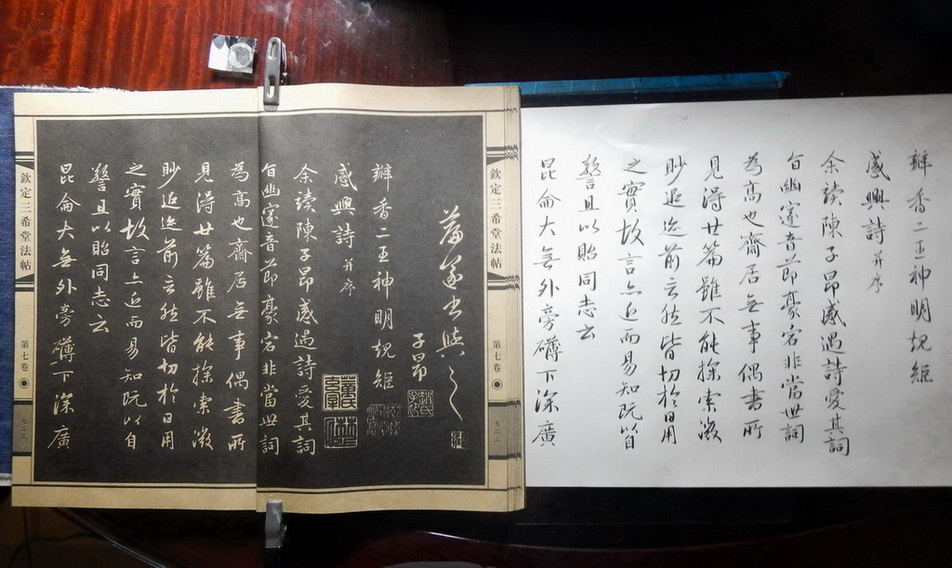 欽定三希堂法帖
第七卷
子昂
瓣香二王神明規矩
感興詩 并序
余讀陳子昂感遇詩愛其詞
旨幽邃音節豪宕非當世詞
為高也齋居無事偶書所
見得廿篇雖不能探索微
眇追迹前言然皆切於日用
之實故言亦近而易知既以自
警且以貽同志云
昆侖大無外旁礴下深廣
欽定三希堂法帖
第七卷
瓣香二王神明規矩
感興詩 并序
余讀陳子昂感遇詩愛其詞
旨幽邃音節豪宕非當世詞
為高也齋居無事偶書所
見得廿篇雖不能探索微
眇追迹前言然皆切於日用
之實故言亦近而易知既以自
警且以貽同志云
昆侖大無外旁礴下深廣